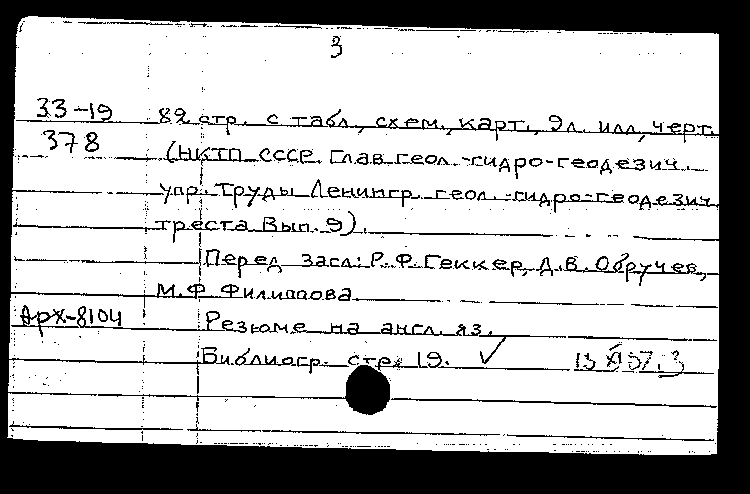 3
33-19 82 стр. с табл., схем., карт., 9л. илл, черт.
378 (НКТП СССР. Глав геол.-гидро-геодезич.
упр. Труды Ленингр. геол.-гидро-геодезич.
треста Вып. 9).
Перед загл: Р.Ф. Геккер, Д.В. Обручев,
М.Ф Филиппова.
Арх-8104 Резюме на англ. яз.
Библиогр. стр. 19. ✓